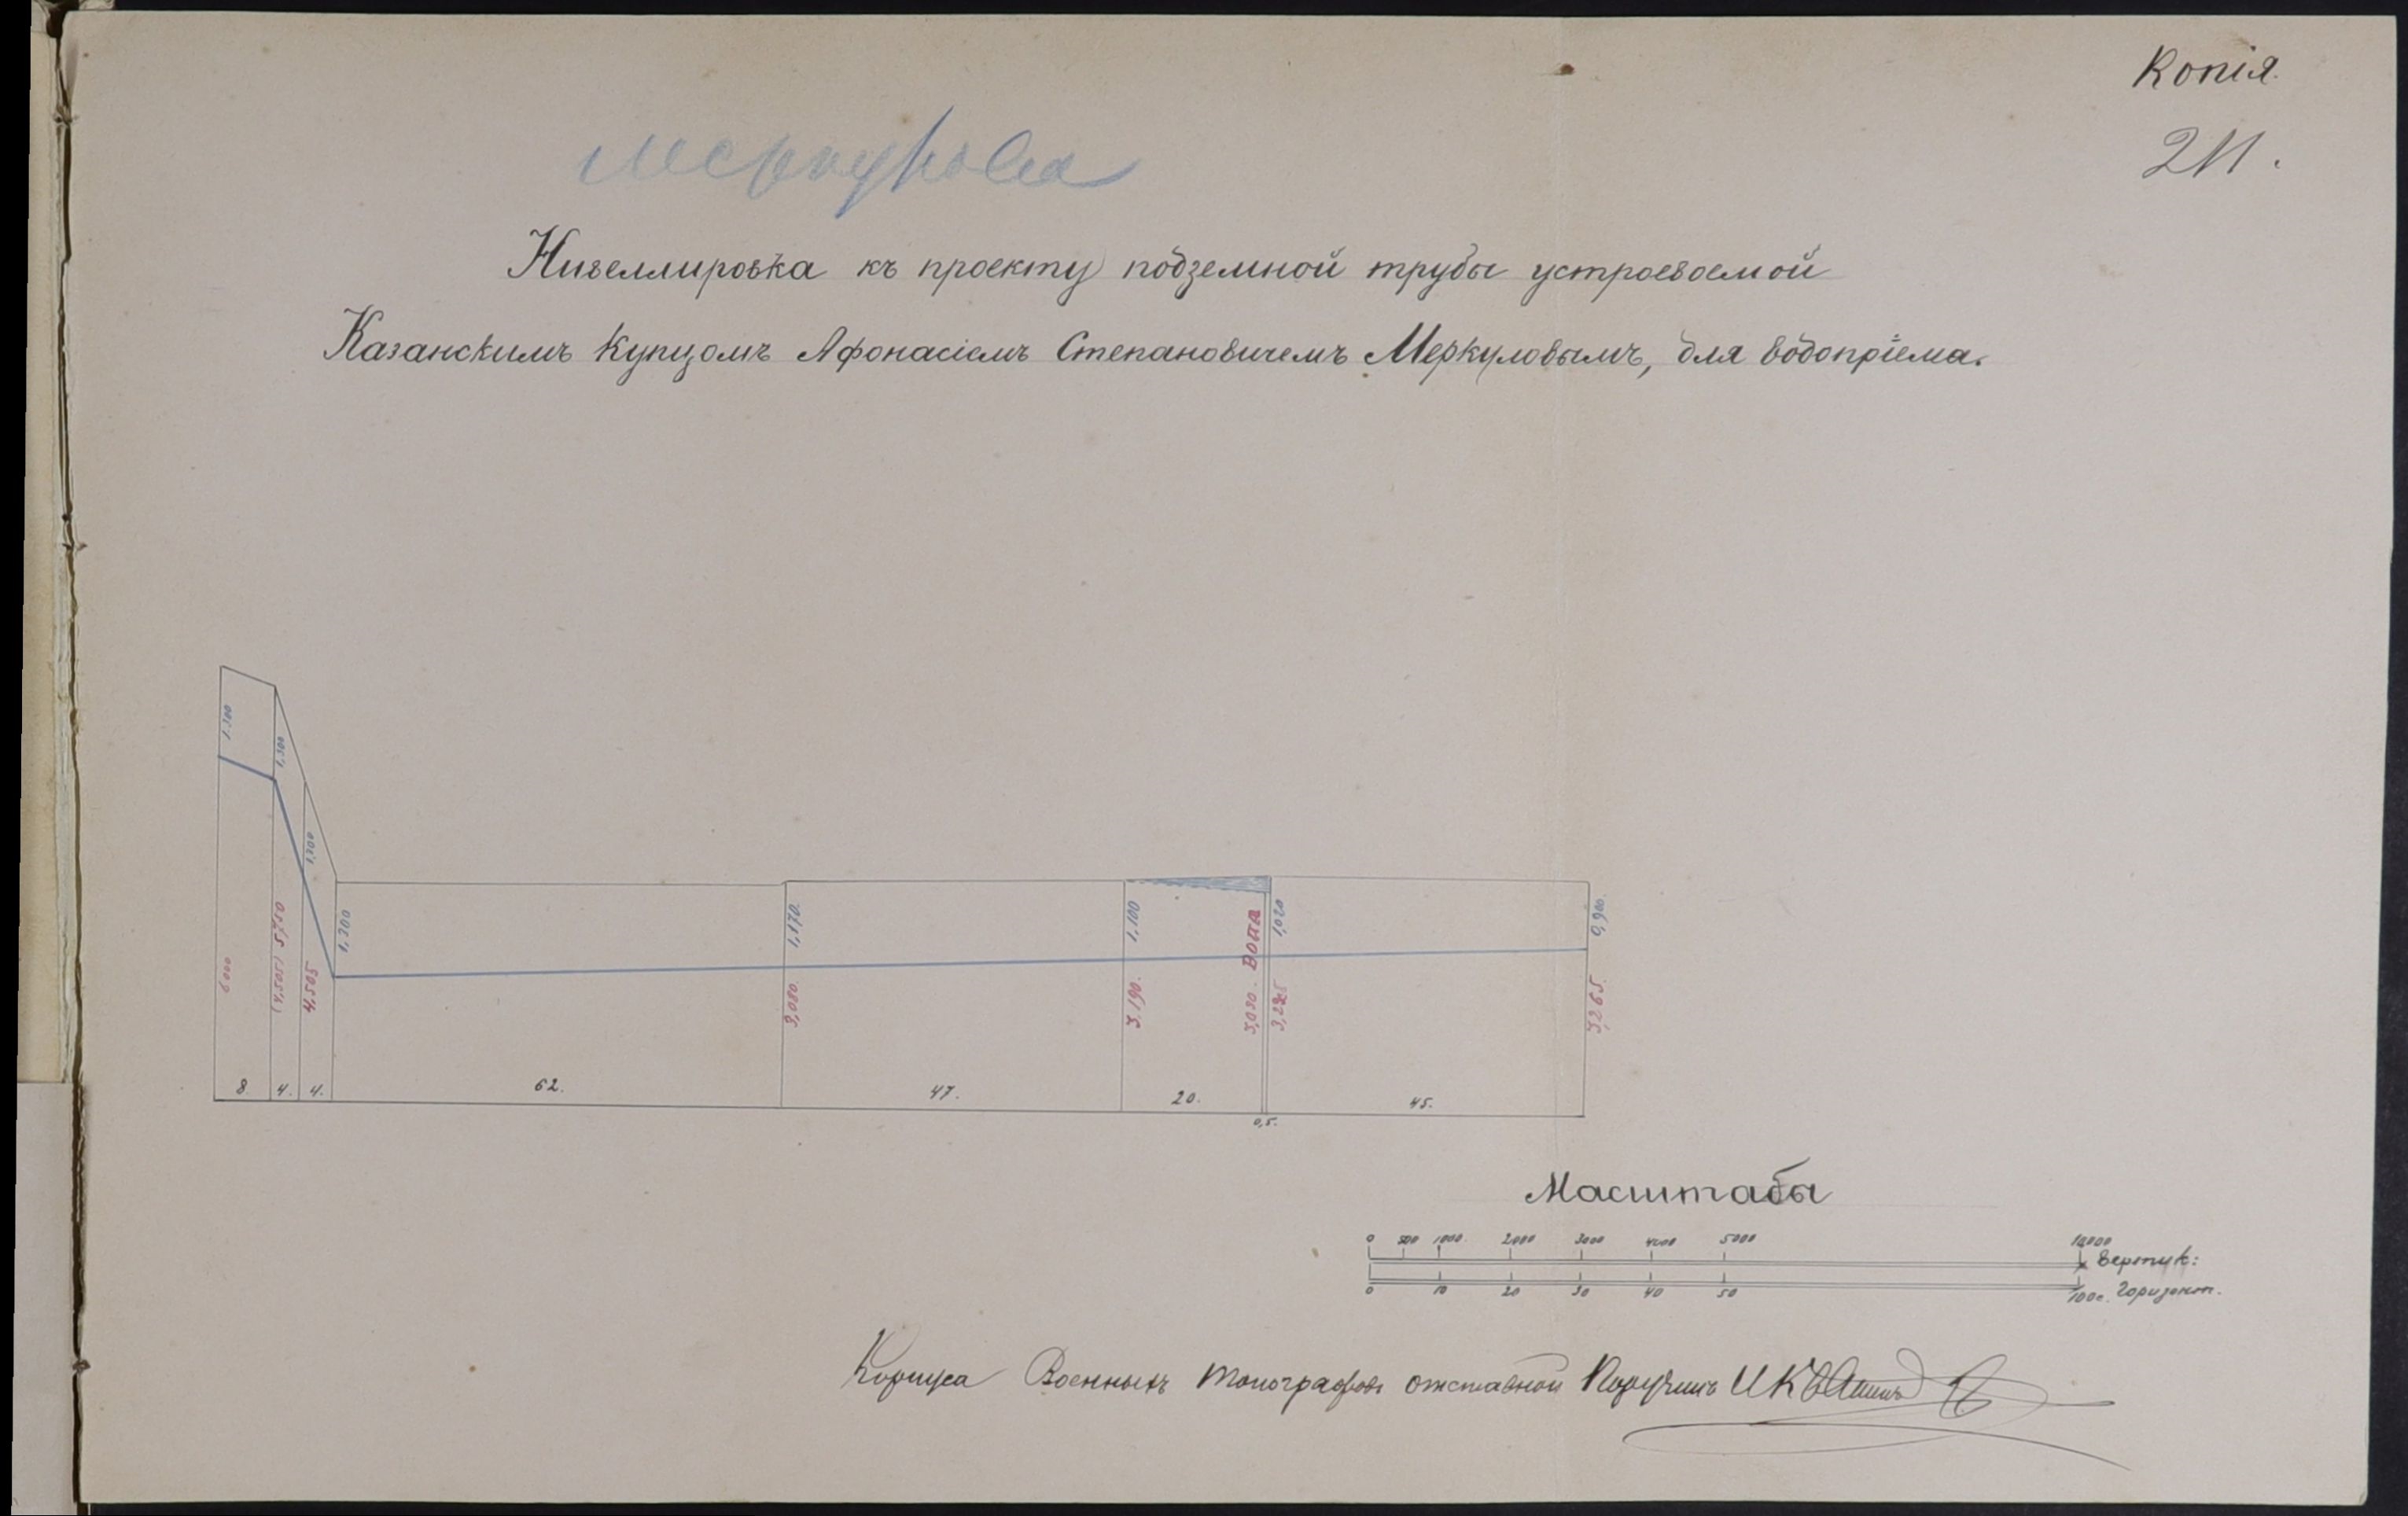 Копія.
211.
Меркулова
Нивеллировка къ проекту подземной трубы устроевоемой
Казанскимъ Купцомъ Афонасіемъ Степановичемъ Меркуловымъ, для водопріема.
1.300
1,300
1,300
1,300
1,170.
1,100
1,020
0,900.
6000
(4,505) 5,750
4,505
3,080.
3.190.
3,030. Вода
3,225
3,265.
8 4. 4. 62. 47. 20. 45.
0,5.
Масштабы
0 500 1000. 2000 3000 4000 5000 10000
Вертик:
0 10 20 30 40 50 100с. Горизонт.
Корпуса Военныхъ Топографовъ отставной Поручикъ